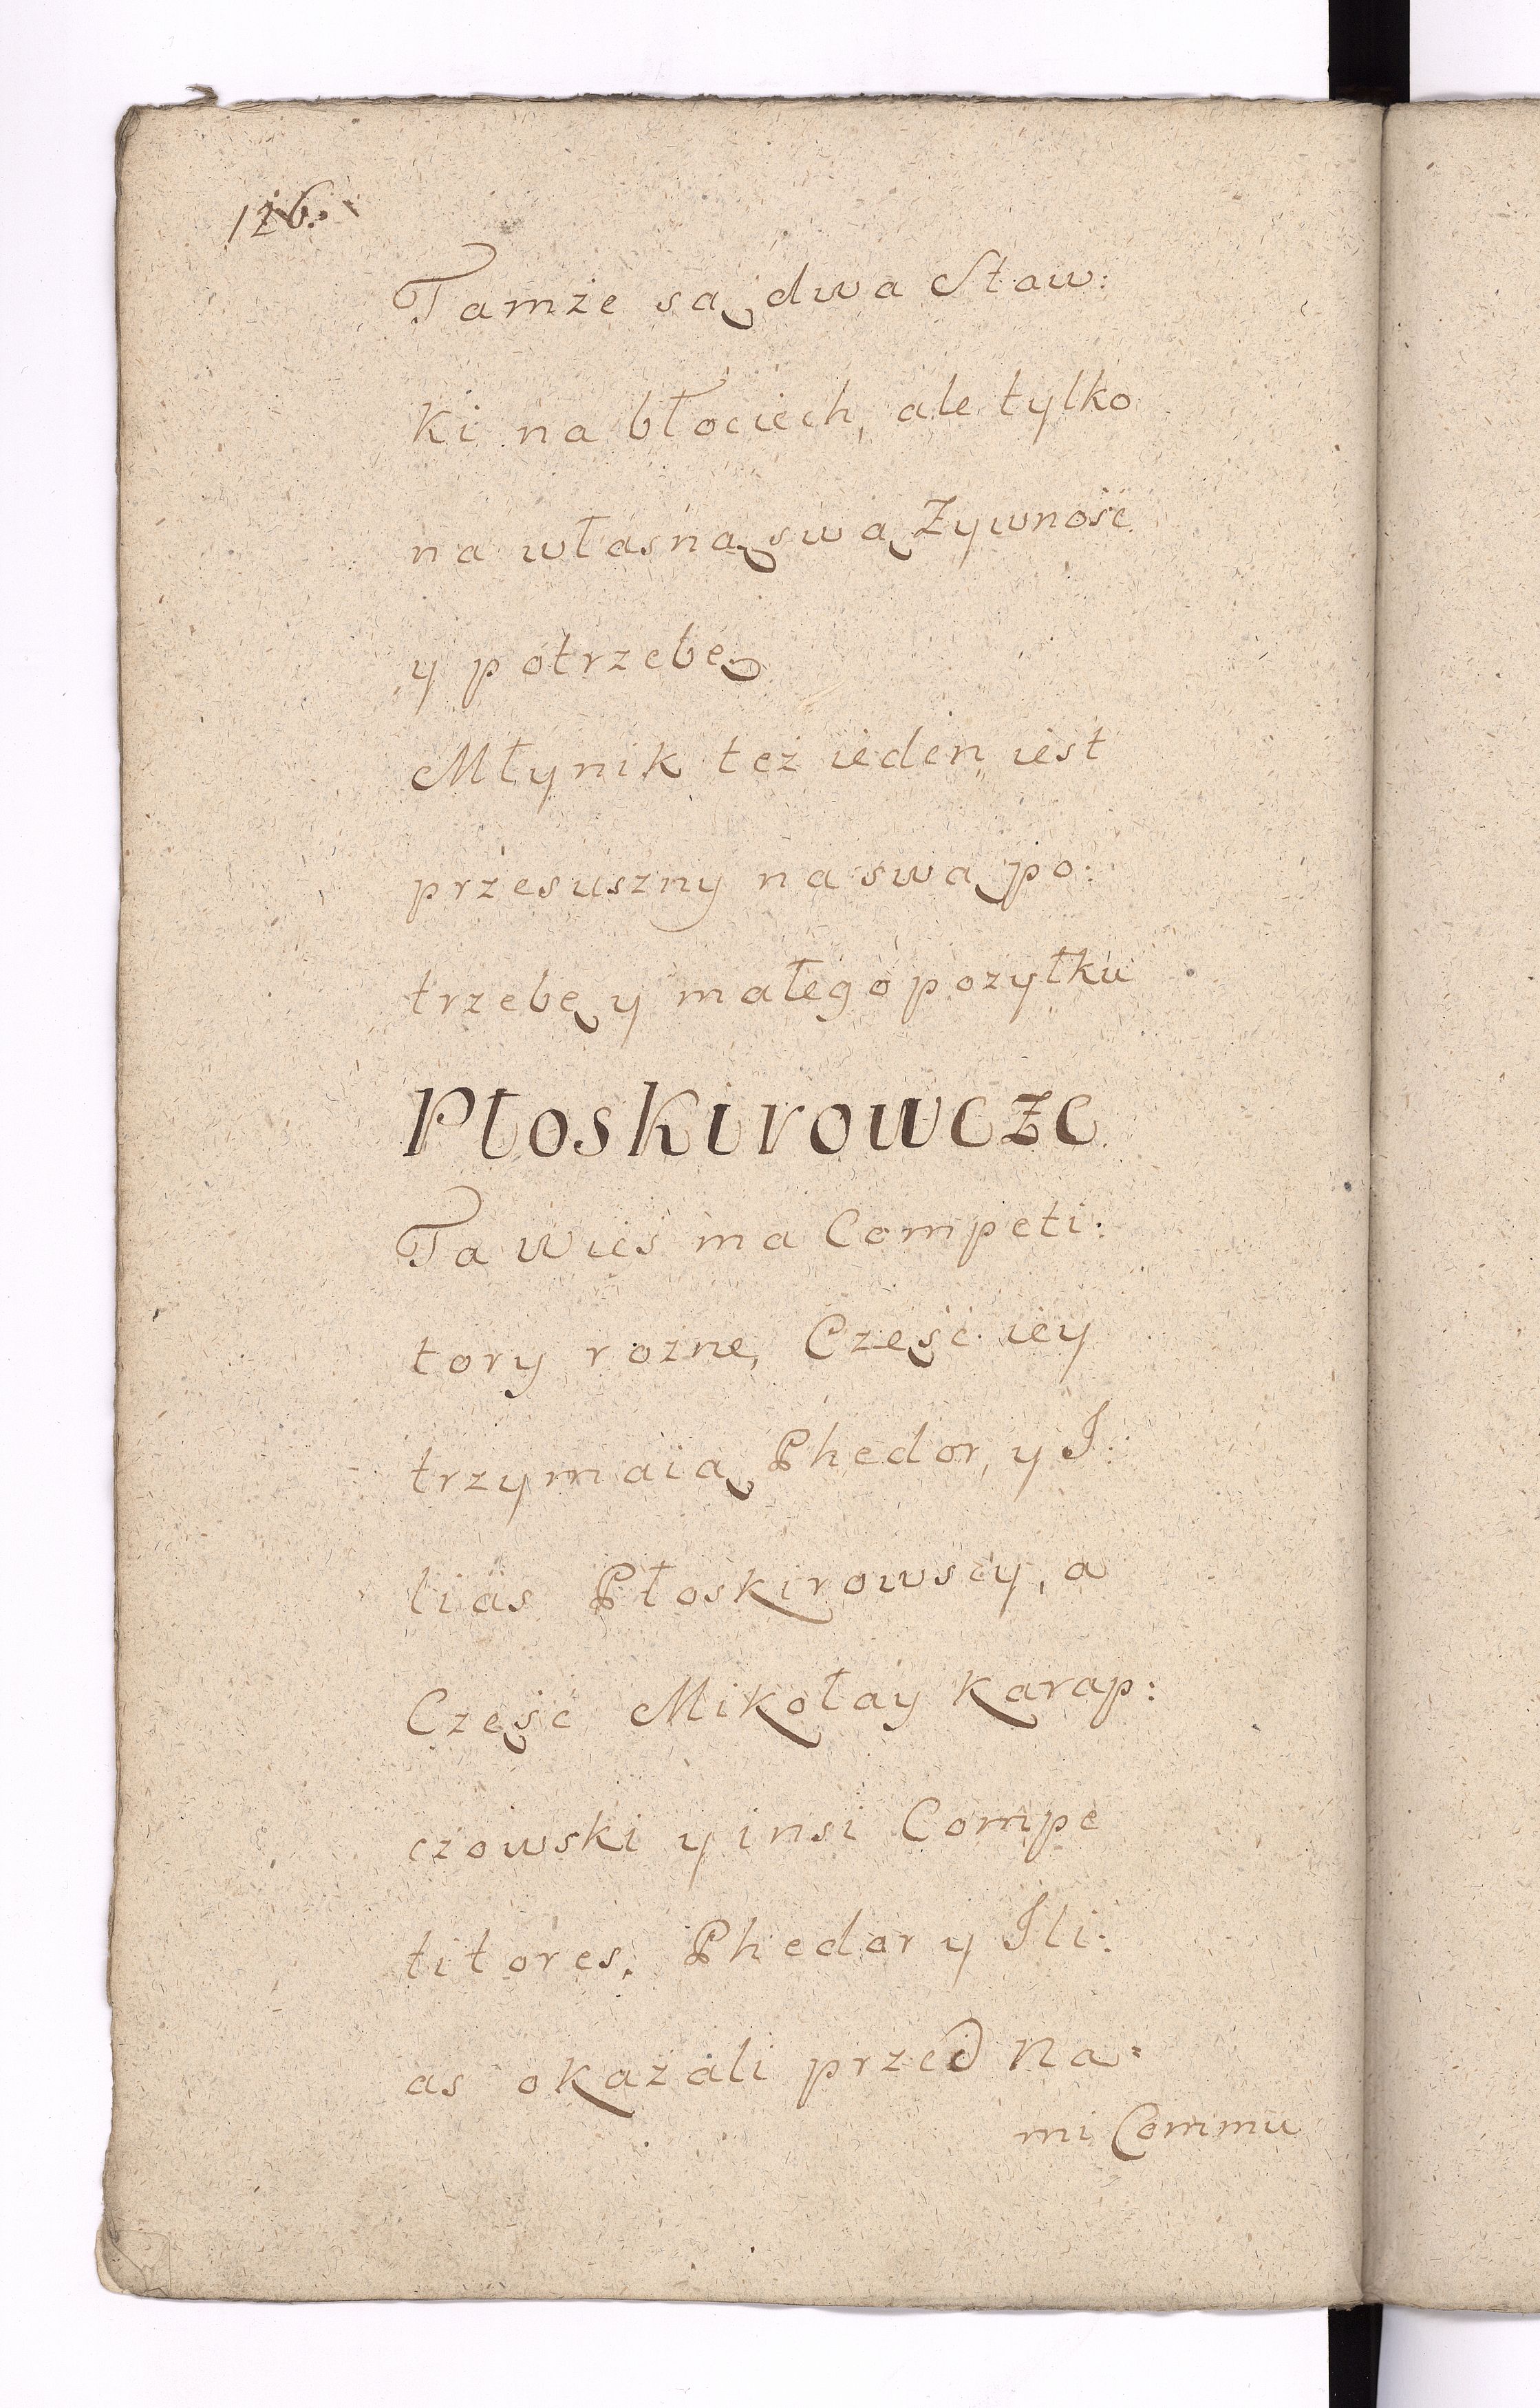 126.
Tamże są dwa Staw:
ki na błociech, ale tylko
na własną swą Żywność
y potrzebę
Młynik też ieden iest
przesuszny na swą po:
trzebę y małego pozytku
Ptoskirowcze
Ta wieś ma Competi:
tory rożne, Część iey
trzymaią Phedor, y I:
lias Płoskirowscy, a
Część Mikołay Karap:
czowski y insi Compe
titores. Phedor y Ili:
as okazali przed Na:
mi Commu